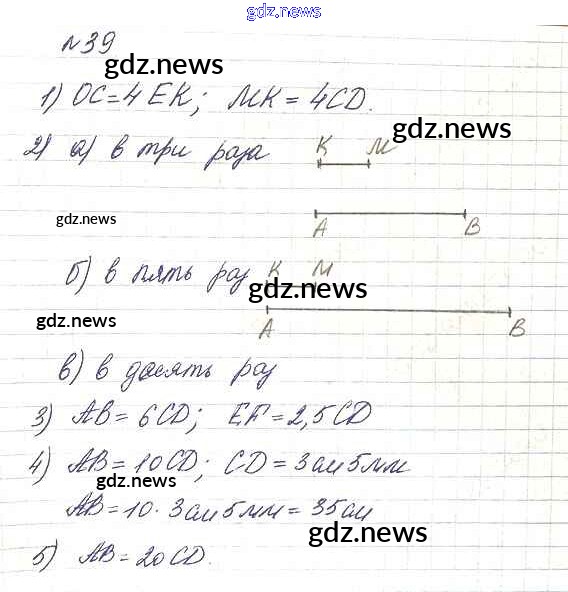 gdz.news
№39
gdz.news
1) ОС=4 ЕК; МК = 4CD.
gdz.news
2) а) в три раза К М
gdz.news
А В
б) в пять раз К М
gdz.news
gdz.news
А В
в) в десять раз
3) АВ = 6CD; EF = 2,5CD
4) АВ = 10CD; CD = 3см 5мм
gdz.news
АВ = 10 · 3см 5мм = 35см
gdz.news
5) АВ = 20CD.